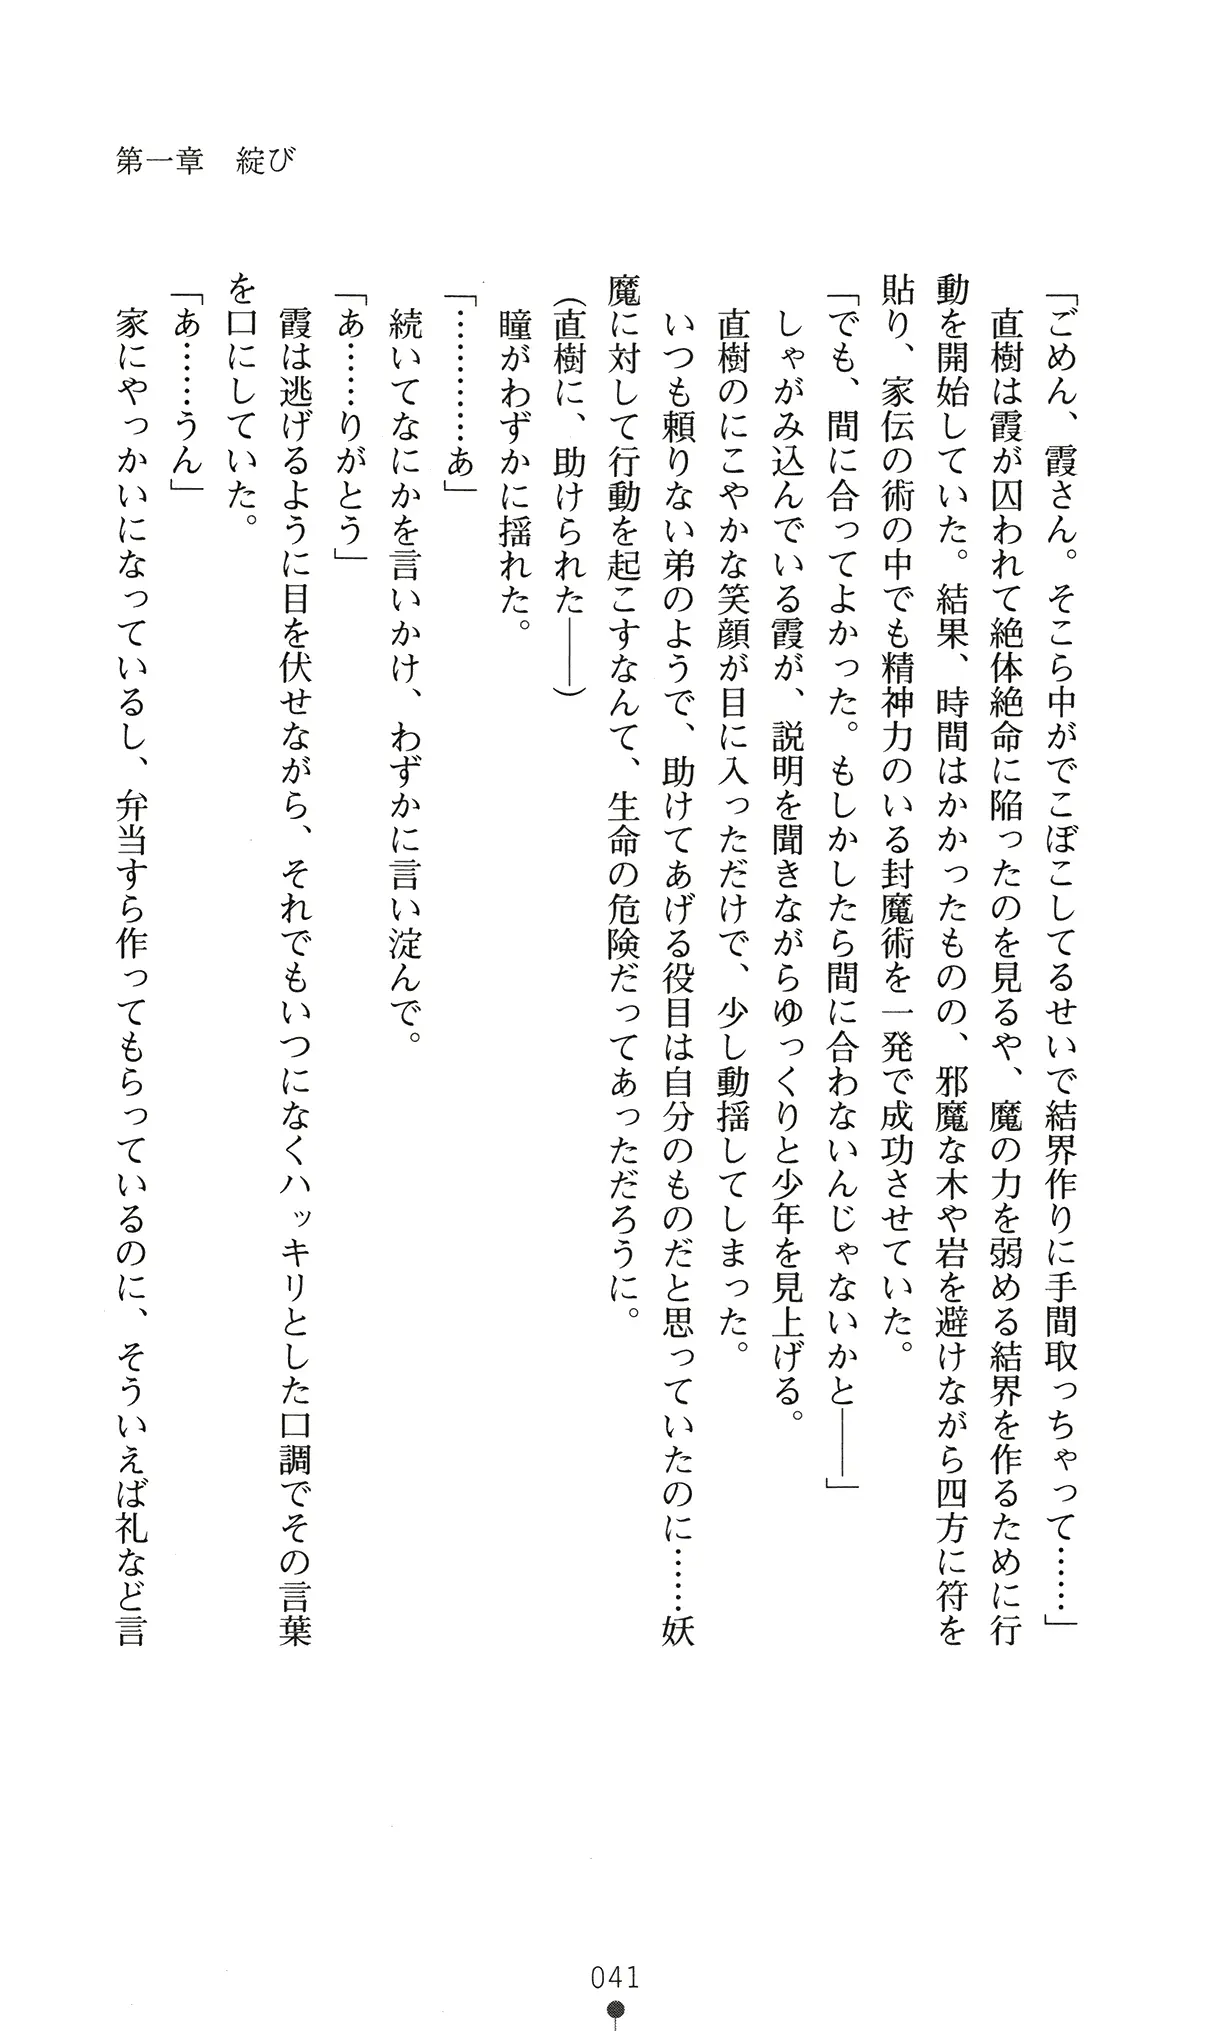 第一章　綻び
「ごめん、霞さん。そこら中がでこぼこしてるせいで結界作りに手間取っちゃって……」
　直樹は霞が囚われて絶体絶命に陥ったのを見るや、魔の力を弱める結界を作るために行
動を開始していた。結果、時間はかかったものの、邪魔な木や岩を避けながら四方に符を
貼り、家伝の術の中でも精神力のいる封魔術を一発で成功させていた。
「でも、間に合ってよかった。もしかしたら間に合わないんじゃないかと――」
　しゃがみ込んでいる霞が、説明を聞きながらゆっくりと少年を見上げる。
　直樹のにこやかな笑顔が目に入っただけで、少し動揺してしまった。
　いつも頼りない弟のようで、助けてあげる役目は自分のものだと思っていたのに……妖
魔に対して行動を起こすなんて、生命の危険だってあっただろうに。
（直樹に、助けられた――）
　瞳がわずかに揺れた。
「…………あ」
　続いてなにかを言いかけ、わずかに言い淀んで。
「あ……りがとう」
　霞は逃げるように目を伏せながら、それでもいつになくハッキリとした口調でその言葉
を口にしていた。
「あ……うん」
　家にやっかいになっているし、弁当すら作ってもらっているのに、そういえば礼など言
041